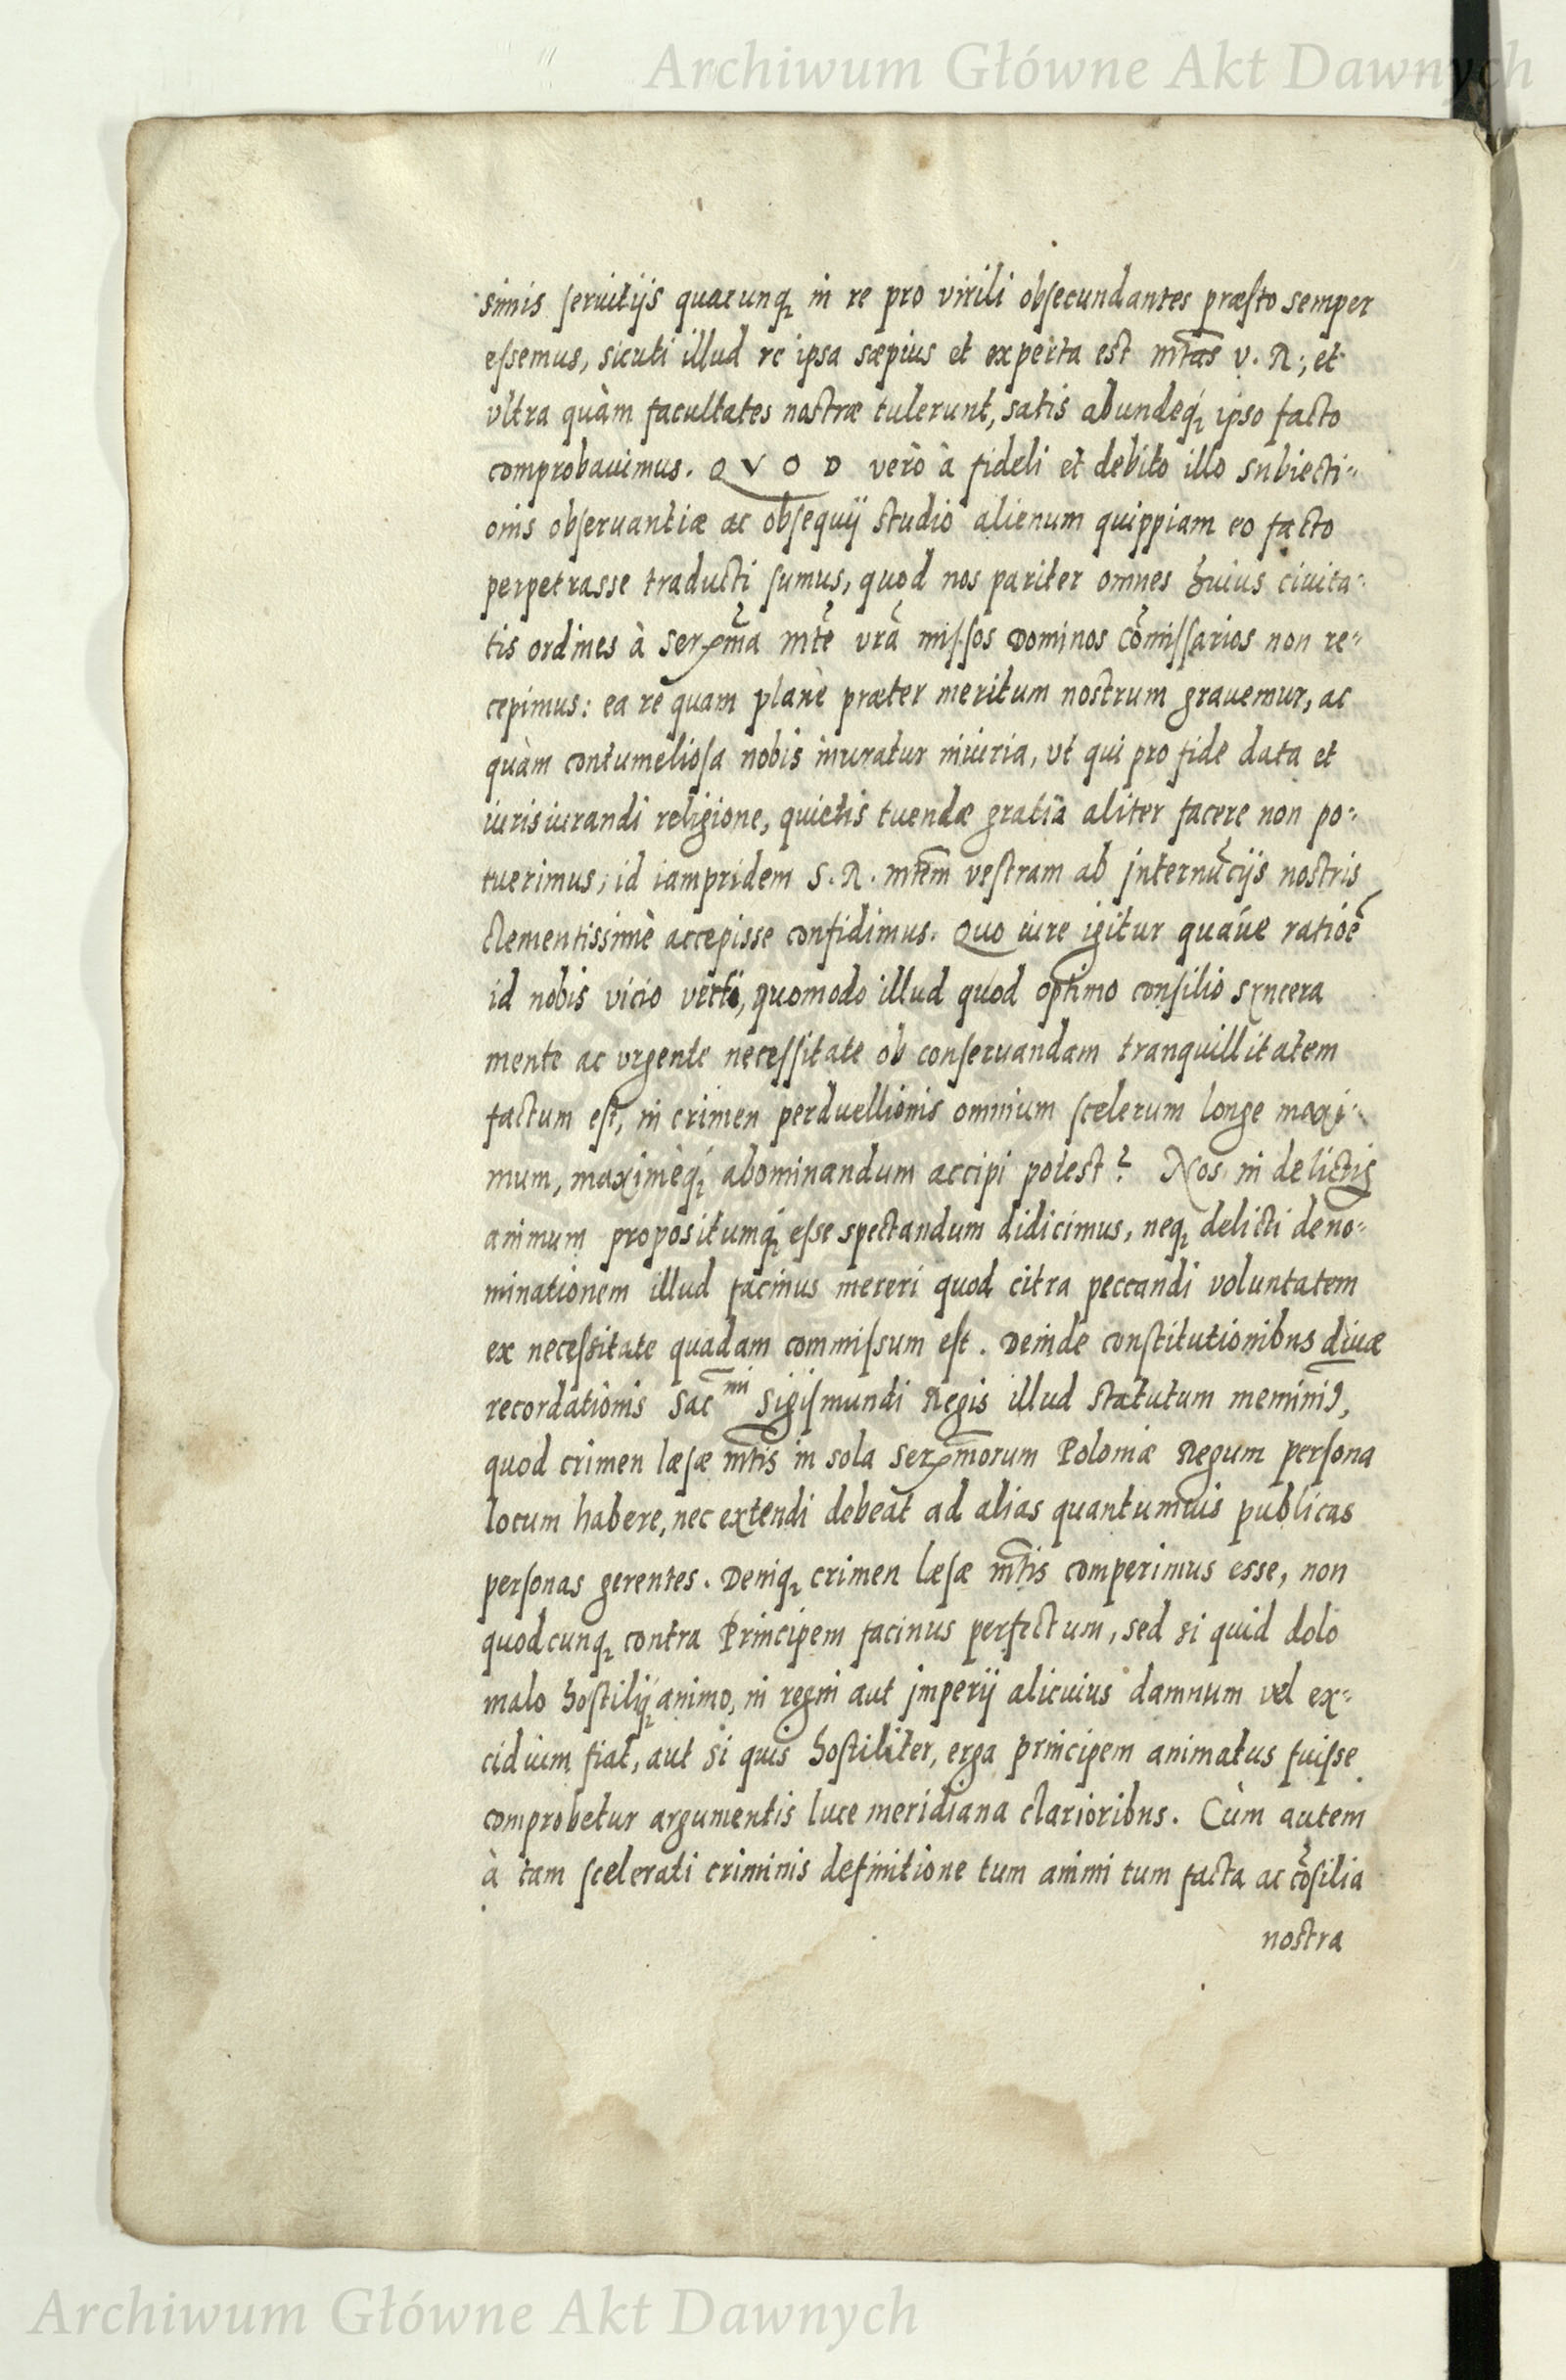 Archiwum Główne Akt Dawnych
simis seruitijs quacunq; in re pro virili obsecundantes præsto semper
essemus, sicuti illud re ipsa sæpius et experta est Mtas V. R; et
vltra quàm facultates nostræ tulerunt, satis abundeq; ipso facto
comprobauimus. QVOD verò à fideli et debito illo subiecti-
onis obseruantiæ ac obsequij studio alienum quippiam eo facto
perpetrasse traducti sumus, quod nos pariter omnes huius ciuita-
tis ordines à Serma Mte vrã missos Dominos Cõmissarios non re-
cepimus: ea re quam planè præter meritum nostrum grauemur, ac
quàm contumeliosa nobis inuratur iniuria, vt qui pro fide data et
iurisiurandi religione, quietis tuendæ gratia aliter facere non po-
tuerimus; id iampridem S. R. Mtem vestram ab Internuciis nostris
clementissimè accepisse confidimus. Quo iure igitur quáue ratioẽ
id nobis vicio verti, quomodo illud quod optimo consilio syncera
mente ac vrgente necessitate ob conseruandam tranquillitatem
factum est, in crimen perduellionis omnium scelerum longe maxi-
mum, maximèq; abominandum accipi potest? Nos in delictis
animum propositumq; esse spectandum didicimus, neq; delicti deno-
minationem illud facinus mereri quod citra peccandi voluntatem
ex necessitate quadam commissum est. Deinde constitutionibus diuæ
recordationis Sac mi Sigismundi Regis illud statutum meminimus,
quod crimen læsæ Mtis in sola Sermorum Poloniæ Regum persona
locum habere, nec extendi debeat ad alias quantumuis publicas
personas gerentes. Deniq; crimen læsæ Mtis comperimus esse, non
quodcunq; contra Principem facinus perfectum, sed si quid dolo
malo hostiliq; animo, in regni aut Imperij alicuius damnum vel ex-
cidium fiat, aut si quis hostiliter, erga principem animatus fuisse
comprobetur argumentis luce meridiana clarioribus. Cùm autem
à tam scelerati criminis definitione tum animi tum facta ac cõsilia
nostra
Archiwum Główne Akt Dawnych